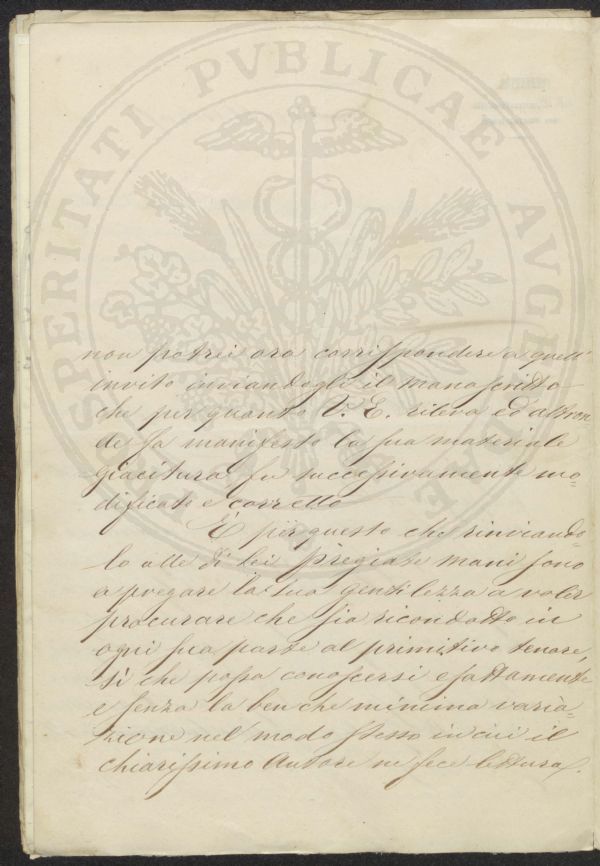 PROSPERITATI PVBLICAE AVGENDAE
non potrei ora corrispondere a quell'
invito inviandogli il manoscritto
che per quanto V. E. rileva ed altron
de fa manifesto la sua materiale
giacitura fu successivamente mo=
dificato e corretto
È per questo che rinviando=
lo alle di Lei pregiate mani sono
a pregare la sua gentilezza a voler
procurare che sia ricondotto in
ogni sua parte al primitivo tenore,
sì che possa conoscersi esattamente
e senza la ben che minima varia=
zione nel modo stesso in cui il
chiarissimo Autore ne fece lettura.